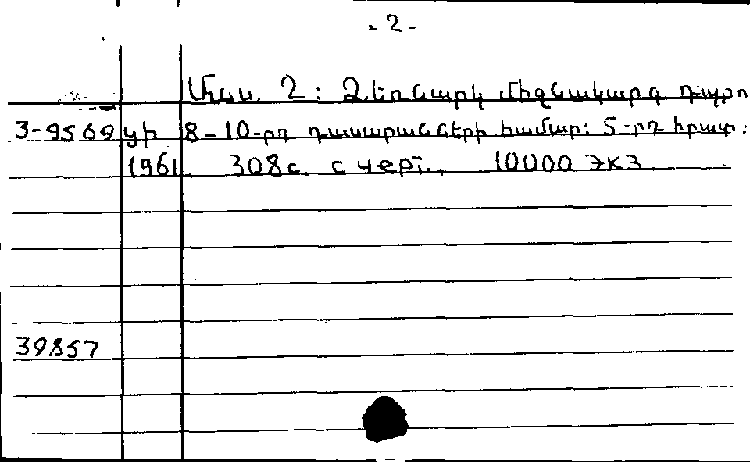 - 2 -
Մաս. 2: Ձեռնարկ միջնակարգ դպրո
3-9569 ցի 8-10-րդ դասարանների համար: 5-րդ հրատ.:
1961 308 с. с черт., 10000 экз
39857